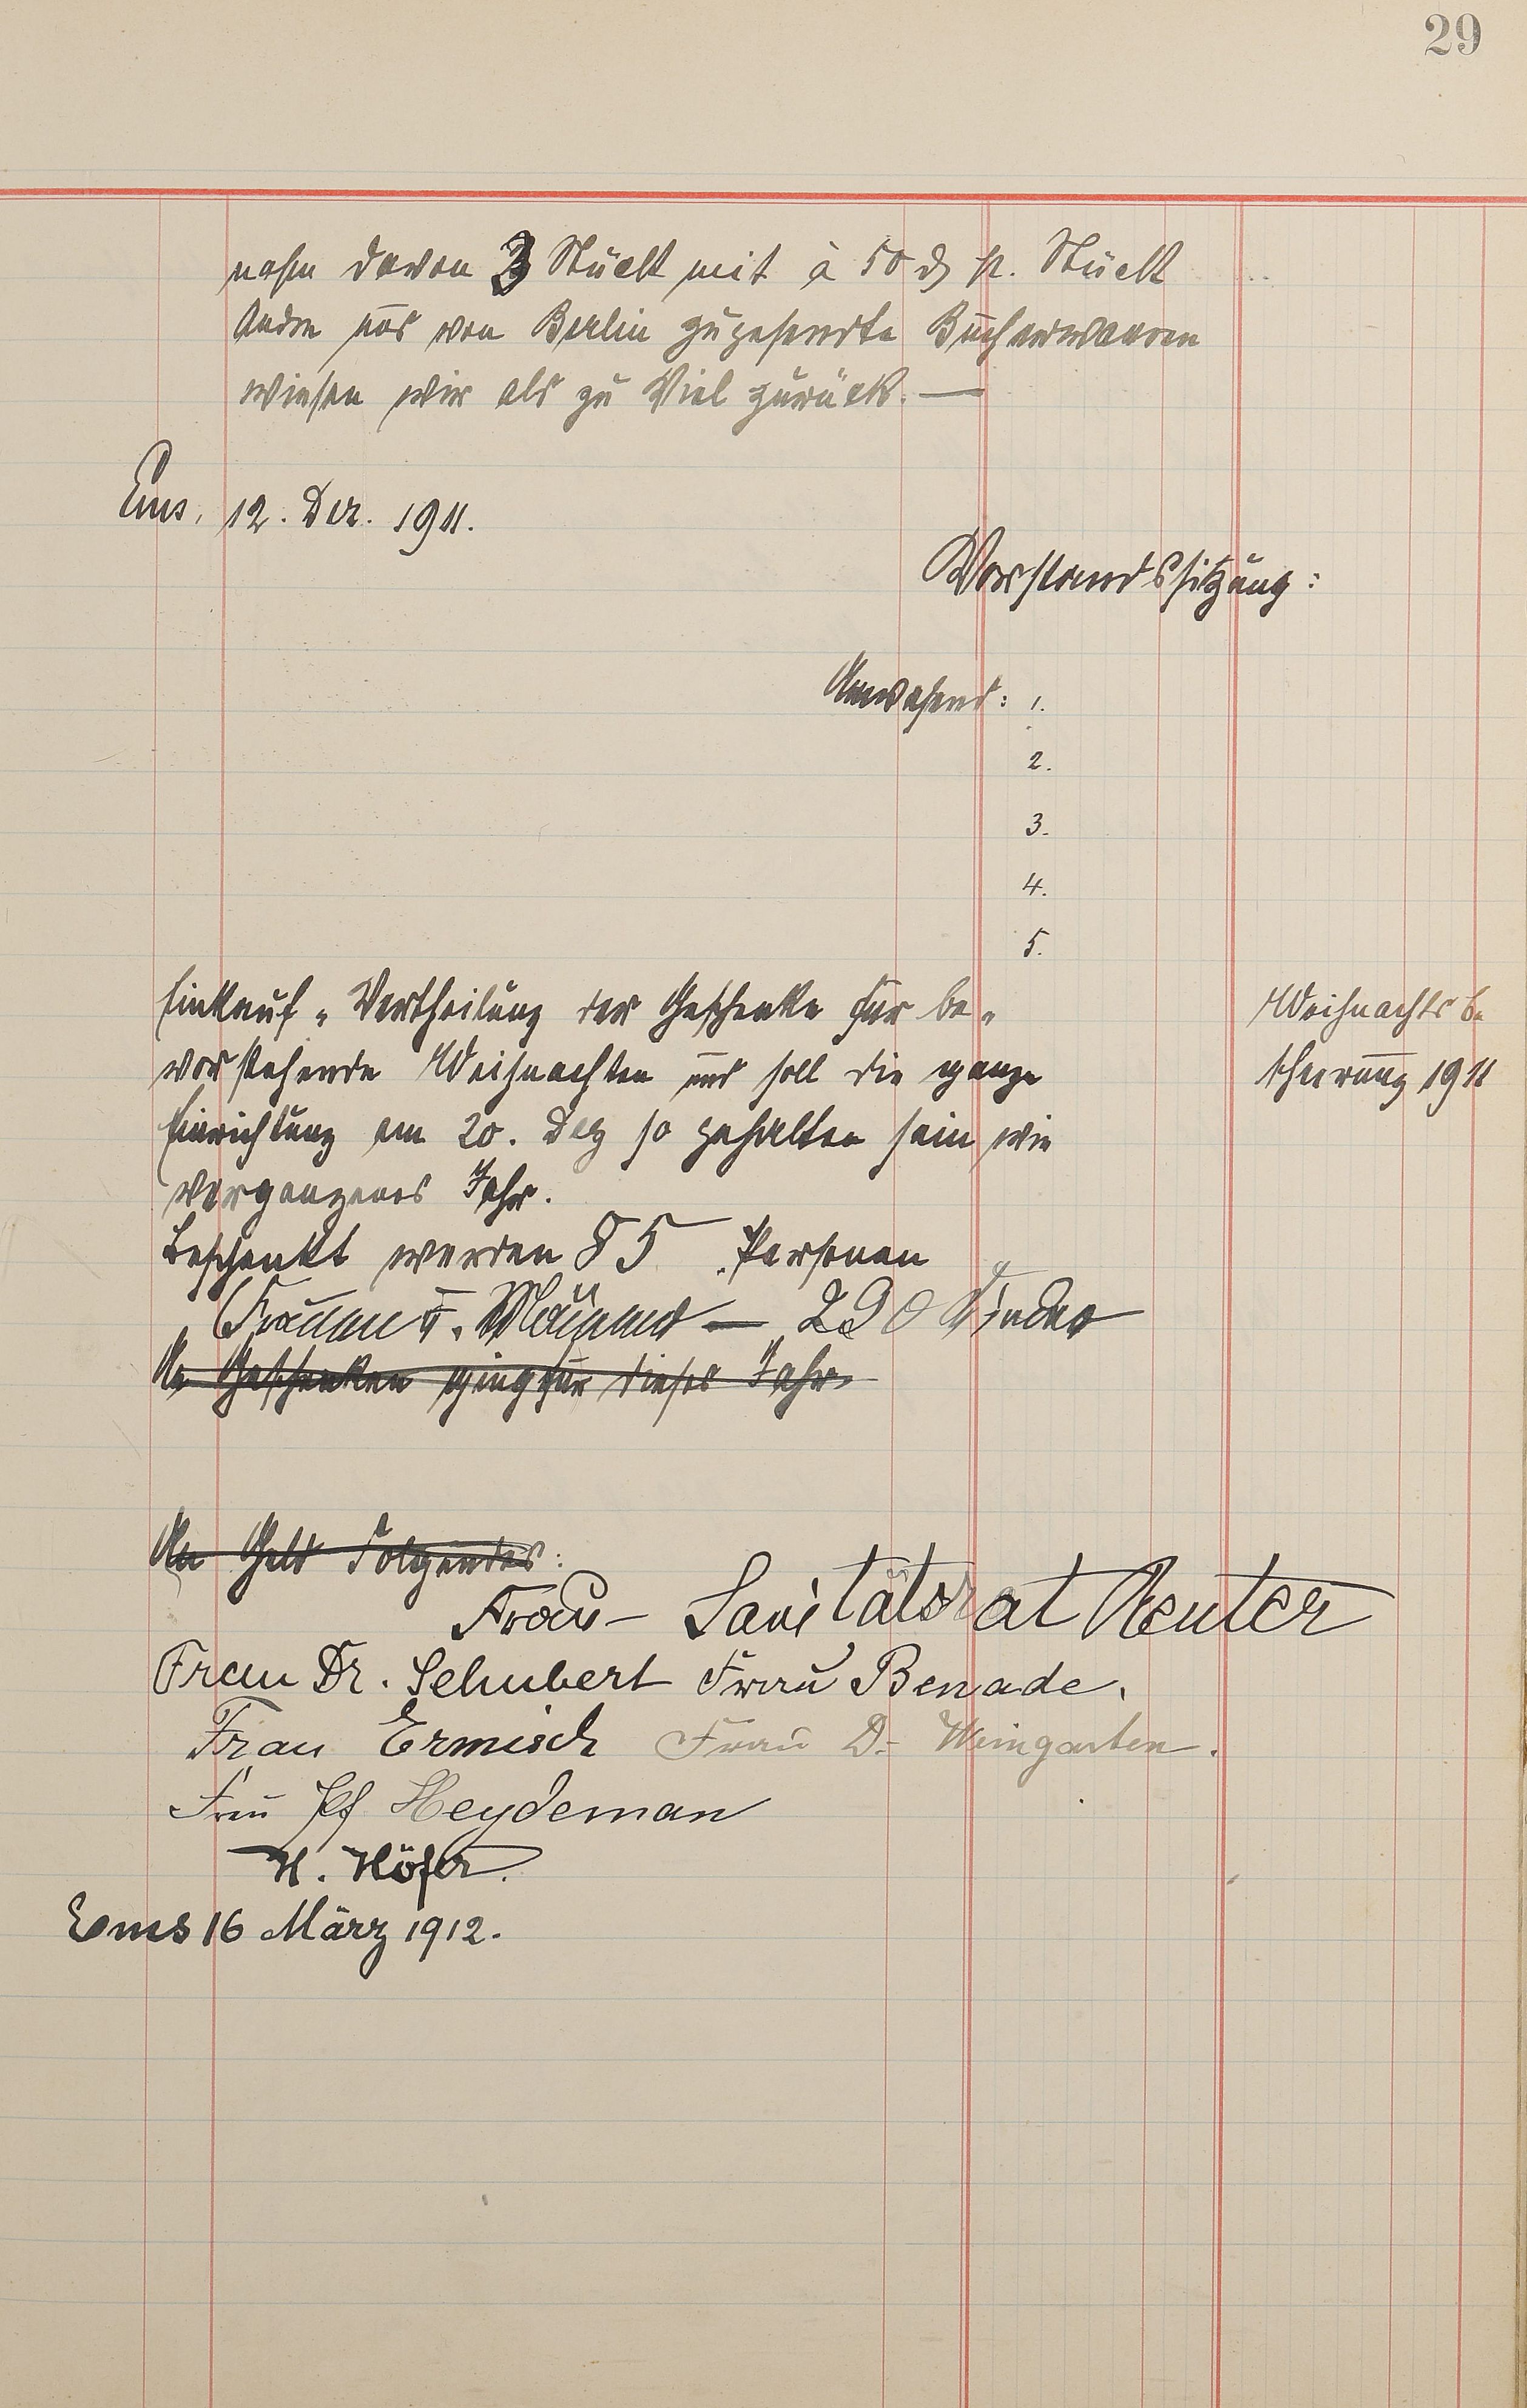 29
nahm davon 3 Stück mit à 50 ₰ p. Stück
Andre uns von Berlin zugesendte Bücherwaaren
wiesen wir als zu Viel zurück. —
Ems, 12. Dez. 1911.
Vorstandssitzung:
Anwesend: 1.
2.
3.
4.
5.
Einkauf u Vertheilung der Geschenke für be-
vorstehende Weihnachten und soll die ganze
Einrichtung am 20. Dez so gehalten sein wie
vergangenes Jahr.
Weihnachts be
scheerung 1911
Beschenkt werden 85 Personen
(Frauen u. Männer — 290 Kinder
An Geschenken ging für dieses Jahr
An Geld Folgendes:
Frau Sanitätsrat Reuter
Frau Dr. Schubert Frau Benade.
Frau Ermisch Frau Dr. Weingarten.
Frau Pf Heydeman
H. Höfer.
Ems 16 März 1912.